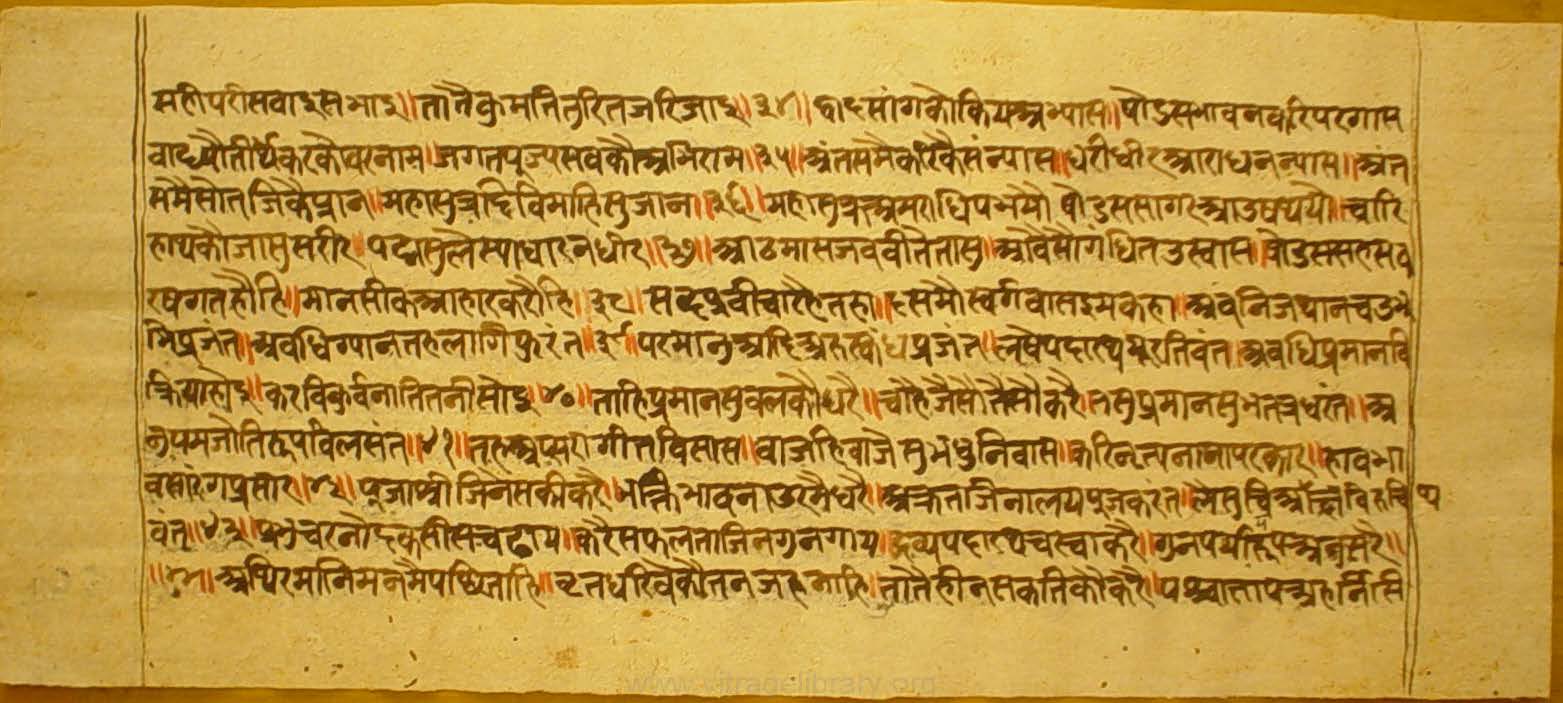 महीपरीसवाइसभाइ॥तातैकुमतितुरितजरिजाइ॥३४॥द्वादसांगकौकियअभ्यास॥षौडसभावनकरिपरगास
वाध्यौतीर्थंकरकौवरनाम॥जगतपूज्यसवकौअभिराम॥३५॥अंतसमैकरिकैसंन्यास॥धरीधीरआराधनन्यास॥अंत
समैसोतजिकैप्रान॥महासुक्रदिविमाहिसुजान॥३६॥महासुक्रअमराधिपभयौ॥षौडससागरआउषथयौ॥च्यारि
हाथकौजासुसरीर॥पद्मसुलैस्याधारनधीर॥३७॥आठमासजववीतैतासु॥आवैसौगंधितउस्वास॥षौडससहसव
रषगतहौहि॥मानसीकआहारकरौहि॥३८॥सव्दप्रवीचारहैतहा॥दसमौस्वर्गवासइमकहा॥अवनिजथानचउथ
भिप्रजंत॥अवधिग्यानतहलागैफुरंत॥३९॥परमानुआदिअरुस्कंधप्रजंत॥लषैपदारथमूरतिवंत॥अवधिप्रमानवि
क्रियाहोइ॥करविकुर्वनातितनीसोइ॥४०॥ताहिप्रमानसुवलकौधरै॥चाहैजैसौतैसौकरै॥तसुप्रमानसुभतेजधरंत॥अ
नुपमजौतिरूपविलसंत॥४१॥तहअप्सरागीतविलास॥वाजहिवाजैसुभधुनिवास॥करिनृत्यनानापरकार॥हावभा
वसारंगप्रसार॥४२॥पूजाश्रीजिनेसकीकरै॥भक्तिभावनाउरमैधरै॥अक्रतजिनालयपूजकरंत॥
वंत॥४३॥प्रभुचरनोदकसीसचढाय॥करैसफलताजिनगुनगाय॥द्रव्यपदारथचस्वाकरै॥गुनपर्यायरूपअनुसरै॥
॥४४॥अथिरमानिमनमैपछिताहि॥वृतधरिवेकौतनजहनाहि॥तातैहीनसकतिकौकरै॥पश्चातापअहर्निसि
www.vitragelibrary.org